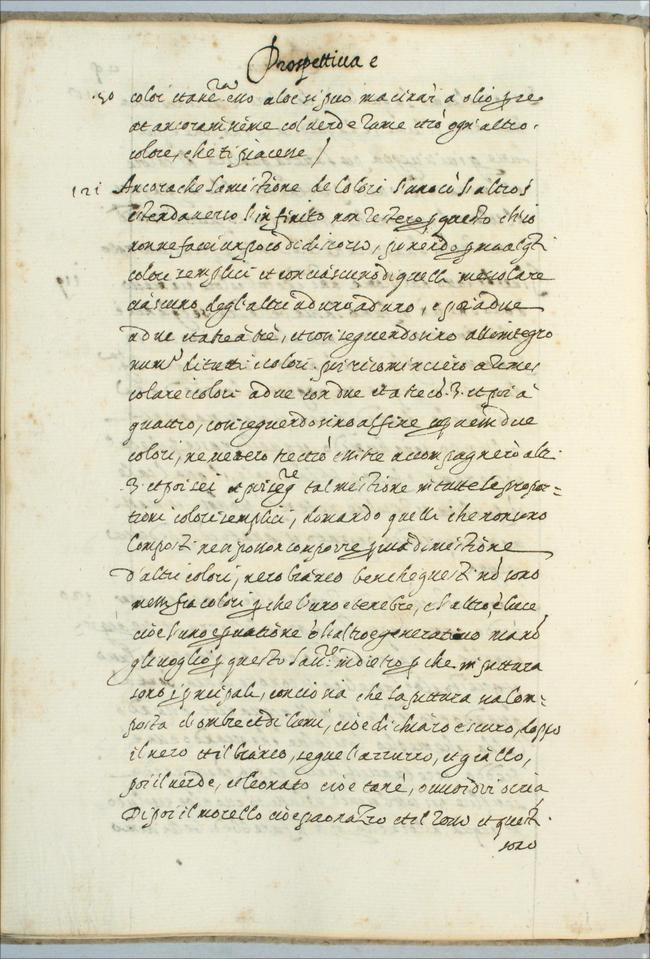 Prospettiua e
colori et aloe si puo macinar a olio
et ancora insieme col uerde rame et co ogni altro
colore, che ti piacene /
121 Ancora che la mistione de Colori l'uno cō l'altro s
estenda uerso l'infinito non restero p questo ch'io
non ne facci un poco di discorso, ponendo p ma alq̄ti
colori semplici et con ciascuno di quelli mescolare
ciascuno degl'altri ad uno ad uno, e poi a due
a due et a tre a tre, et cosi seguendo sino all'integro
num.º di tutti i colori. poi ricominciero a rimes
colare i colori a due con due et a tre cō .3. et poi a
quattro, cosi seguendo sino al fine
colori, se ne metero tre et cō essi tre accompagnerò altri
.3. et poi sei et poi seg.re tal mistione in tutte le propor=
tioni colori semplici, domando quelli che non sono
Composti ne si posson comporre p uia di mistione
d'altri colori, nero bianco benche questi nō sono
messi fra colori p che l'uno e tenebre, e l'altro, è luce
cioe l'uno e priuatione è l'altro generatiuo
gli uoglio p questo lasciare indietro p che in pittura
sono i principali, concio sia che la pittura sia Com=
posta d'ombre et di lumi, cioe di chiaro e scuro, doppo
il nero et il bianco, segue l'azzurro, et giallo,
poi il uerde, et leonato cioe tane, o uuoi dir ocria
Di poi il morello cioe paonazzo et il rosso et questi
sono